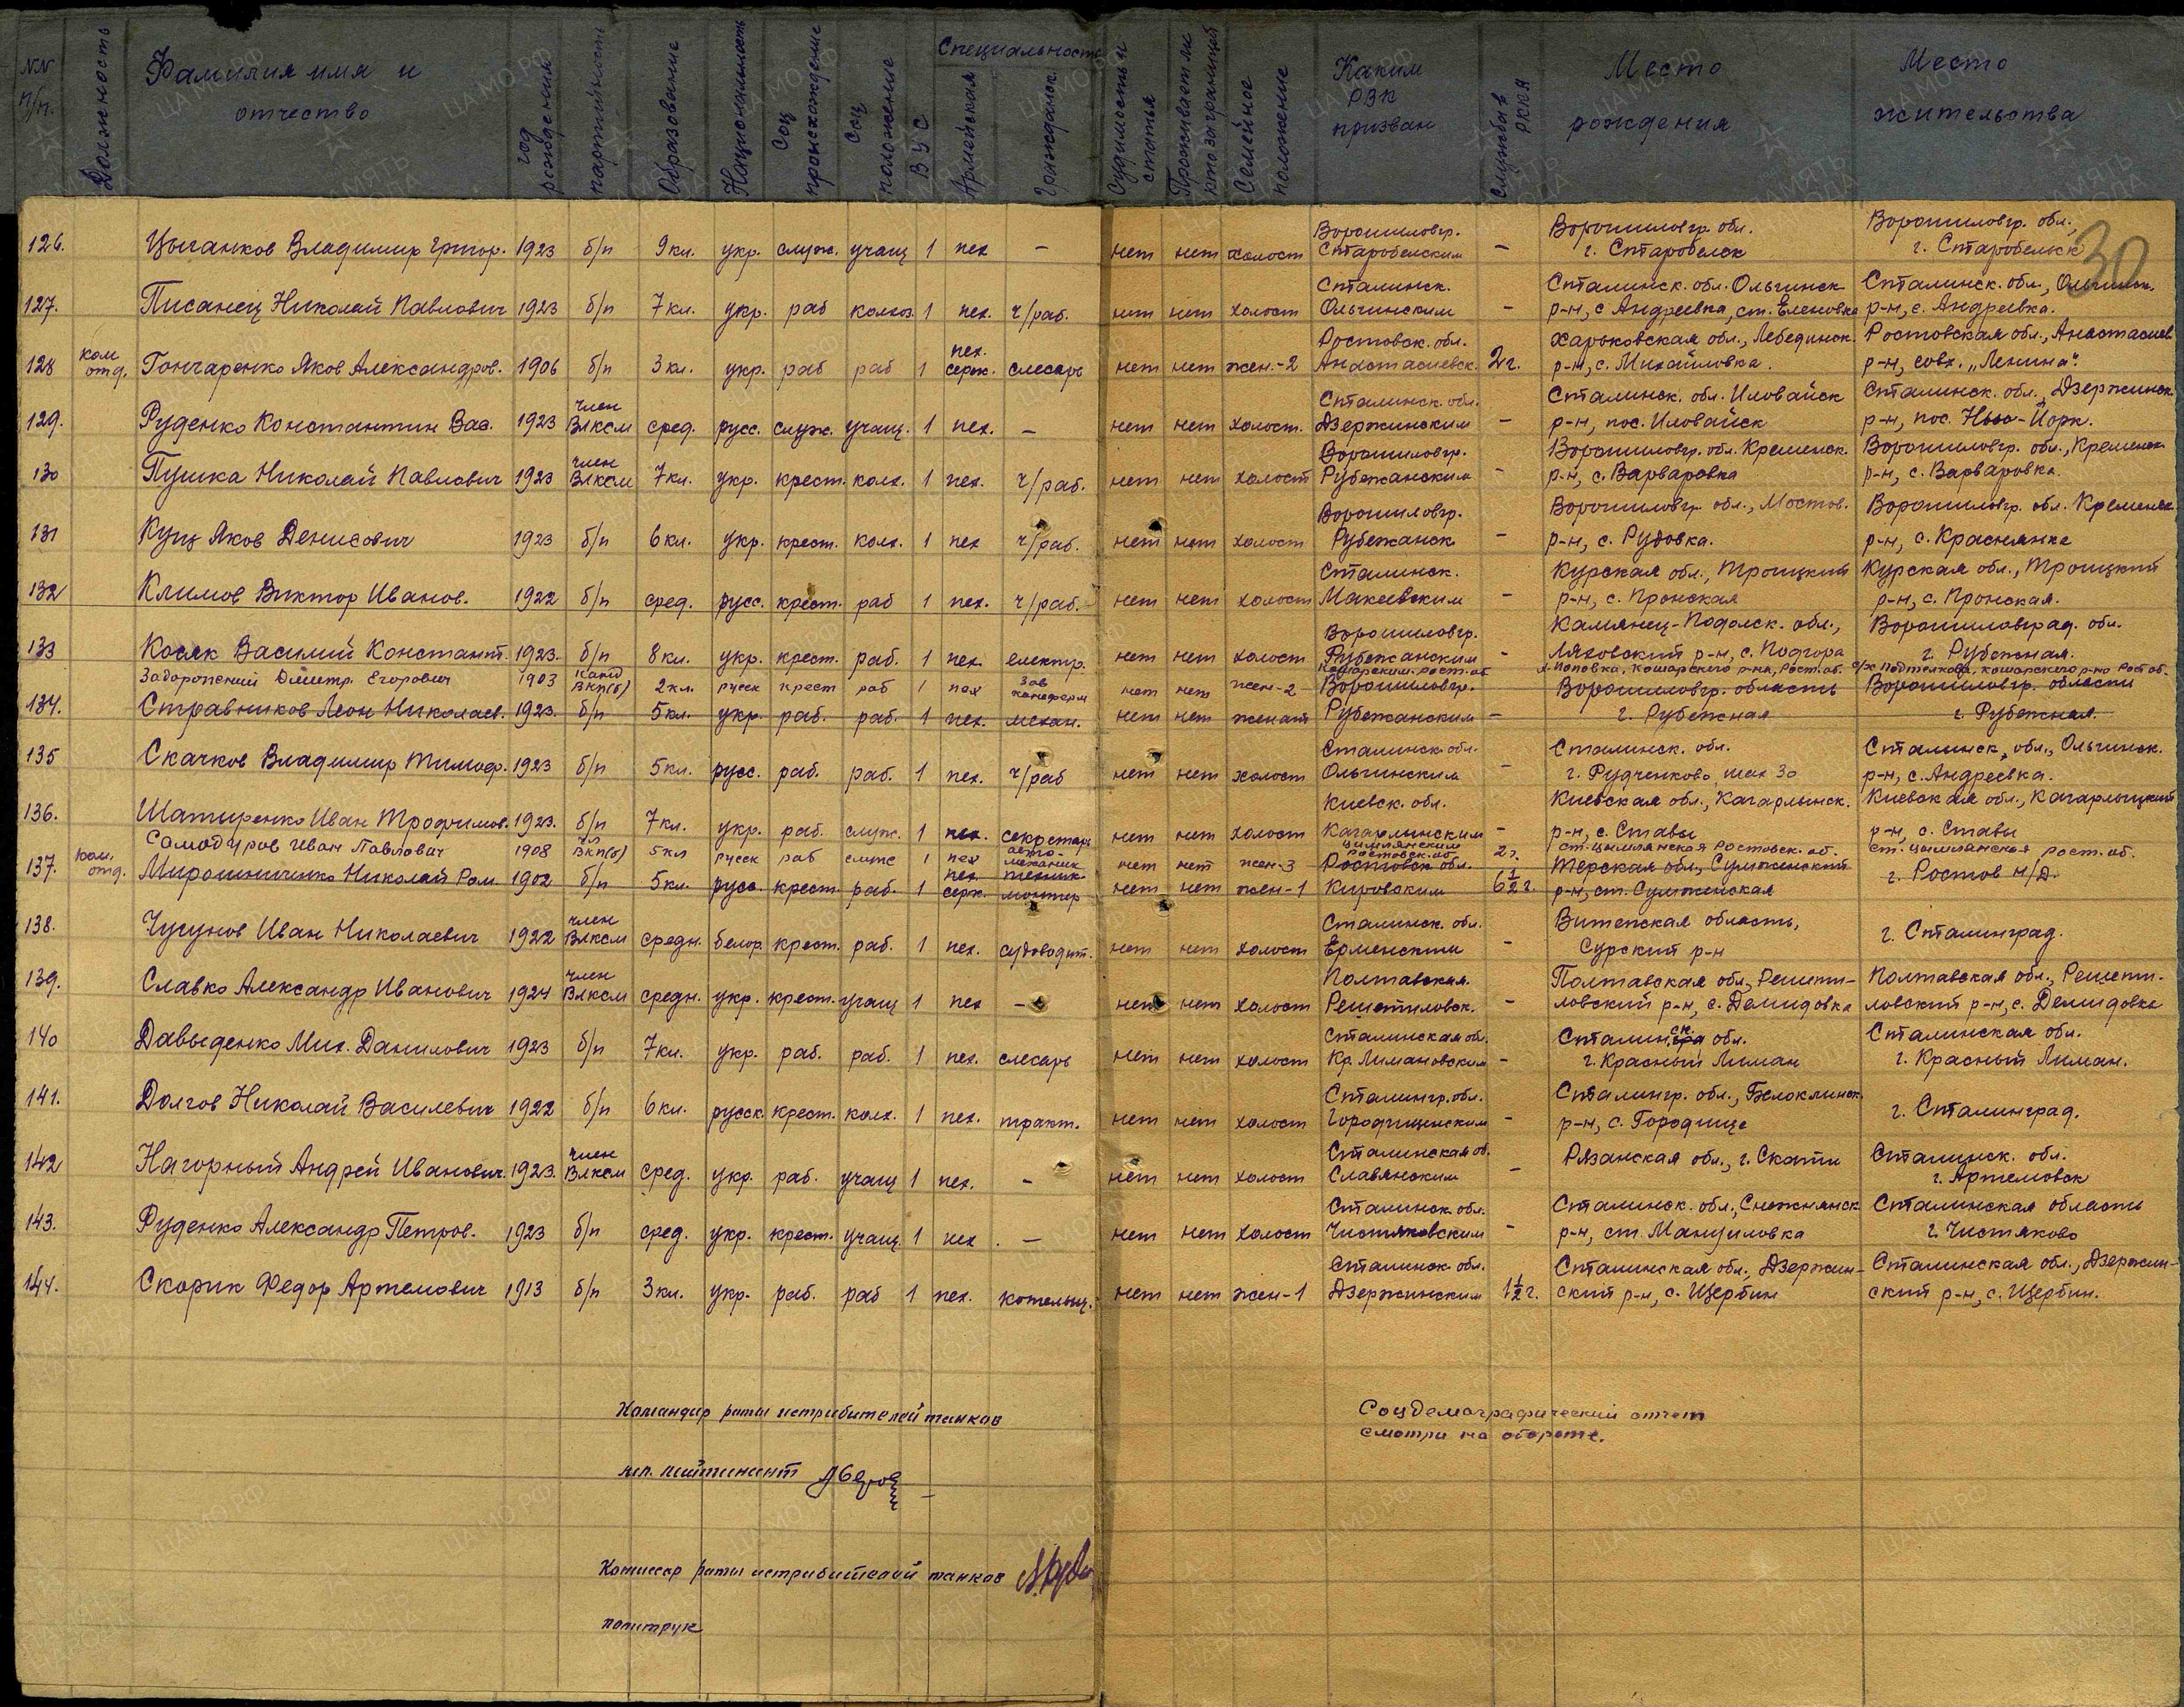 NN п/п. Должность Фамилия имя и отчество год рождения партийность Образование Национальность Соц происхождение Соц положение ВУС Специальность Армейская Гражданск. Судимость и статья Проживает ли кто за границей Семейное положение Каким РВК призван Служба в РККА Место рождения Место жительства
30
126. Цыганков Владимир Григор. 1923 б/п 9кл. укр. служ. учащ 1 пех – нет нет холост Ворошиловгр. Старобельским – Ворошиловгр. обл. г. Старобелск Ворошиловгр. обл., г. Старобельск
127. Писанец Николай Павлович 1923 б/п 7кл. укр. раб колхоз. 1 пех. ч/раб. нет нет холост Сталинск. Ольгинским – Сталинск. обл. Ольгинск р-н, с Андреевка, ст. Еленовка Сталинск. обл., Ольгинск. р-н, с. Андреевка.
128 ком отд. Гончаренко Яков Александров. 1906 б/п 3кл. укр. раб раб 1 пех. серж. слесарь нет нет жен.-2 Ростовск. обл. Анастасиевск. 2г. Харьковская обл., Лебединск. р-н, с. Михайловка. Ростовская обл., Анастасиев. р-н, совх. „Ленина".
129. Руденко Константин Вас. 1923 член ВЛКСМ сред. русс. служ. учащ. 1 пех. – нет нет холост. Сталинск. обл. Дзержинским – Сталинск. обл. Иловайск р-н, пос. Иловайск Сталинск. обл., Дзержинск р-н, пос. Нью-Йорк.
130 Пушка Николай Павлович 1923 член ВЛКСМ 7кл. укр. крест. колх. 1 пех. ч/раб. нет нет холост Ворошиловгр. Рубежанским – Ворошиловгр. обл. Кременск. р-н, с. Варваровка Ворошиловгр. обл., Кременск р-н, с. Варваровка.
131 Куц Яков Денисович 1923 б/п 6кл. укр. крест. колх. 1 пех ч/раб. нет нет холост Ворошиловгр. Рубежанск – Ворошиловгр. обл., Мостов. р-н, с. Рудовка. Ворошиловгр. обл. Кременск р-н, с. Краснянка
132 Климов Виктор Иванов. 1922 б/п сред. русс. крест. раб 1 пех. ч/раб. нет нет холост Сталинск. Макеевским – Курская обл., Троицкий р-н, с. Пронская Курская обл., Троицкий р-н, с. Пронская.
133 Косяк Василий Констант. 1923. б/п 8кл. укр. крест. раб. 1 пех електр. нет нет холост Ворошиловгр. Рубежанским – Камянец-Подолск. обл., Ляховский р-н, с. Подгора Ворошиловград. обл. г. Рубежная.
Задорожний Дмитр. Егорович 1903 Канд ВКП(б) 2кл. русск крест раб 1 пех зав конеферм нет нет жен-2 Кошарским Рост. об. х-Поповка, Кошарского р-на, Рост. об. с/х Подтелкова, кошарского р-на Рост об.
134. Стравников Леон Николаев. 1923. б/п 5кл. укр. раб. раб. 1 пех. механ. нет нет женат Ворошиловгр. Рубежанским – Ворошиловгр. область г. Рубежная Ворошиловгр. области г. Рубежная.
135 Скачков Владимир Тимоф. 1923 б/п 5кл. русс. раб. раб. 1 пех. ч/раб нет нет холост Сталинск. обл. Ольгинским – Сталинск. обл. г. Рудченково, шах 30 Сталинск, обл., Ольгинск. р-н, с. Андреевка.
136. Шатиренко Иван Трофимов. 1923. б/п 7кл. укр. раб. служ. 1 пех. секретарь нет нет холост Киевск. обл. Кагарлынским – Киевская обл., Кагарлынск. р-н, с. Ставы Киевская обл., Кагарлыцкий р-н, с. Ставы
Самодуров Иван Павлович 1908 чл ВКП(б) 5кл русск раб служ 1 пех авто-механик нет нет жен-3 Цымлянским Ростовск. об. 2г. ст. цымлянская Ростовск. об. ст. цымлянская, рост. об.
137. ком. отд. Мирошниченко Николай Ром. 1902 б/п 5кл. русс. крест. раб. 1 пех. серж. техник монтер нет нет жен-1 Ростовск обл. Кировским 6½г. Терская обл, Сунженский р-н, ст. Сунженская г. Ростов н/Д.
138. Чугунов Иван Николаевич 1922 член ВЛКСМ средн. белор. крест. раб. 1 пех. судоводит. нет нет холост Сталинск. обл. Ерменским – Витепская область, Сурский р-н г. Сталинград.
139. Славко Александр Иванович 1924 член ВЛКСМ средн. укр. крест. учащ 1 пех – нет нет холост Полтавская. Решетиловск. – Полтавская обл, Решити-ловский р-н, с. Демидовка Полтавская обл., Решети-ловский р-н, с. Демидовка
140 Давыденко Мих. Данилович 1923 б/п 7кл. укр. раб. раб. 1 пех. слесарь нет нет холост Сталинская обл. Кр. Лимановским – Сталинск. обл. г. Красный Лиман Сталинская обл. г. Красный Лиман.
141. Долгов Николай Василевич 1922 б/п 6кл. русск. крест. колх. 1 пех. тракт. нет нет холост Сталингр. обл. Городищенским – Сталингр. обл., Белоклинск. р-н, с. Городище г. Сталинград.
142 Нагорный Андрей Иванович. 1923. член ВЛКСМ сред. укр. раб. учащ 1 пех. – нет нет холост Сталинская об. Славянским – Рязанская обл., г. Скопи Сталинск. обл. г. Артемовск
143. Руденко Александр Петров. 1923 б/п сред. укр. крест. учащ. 1 пех. – нет нет холост Сталинск. обл. Чистяковским – Сталинск. обл., Снежнянск р-н, ст. Мануиловка Сталинская область г. Чистяково
144. Скорик Федор Артемович 1913 б/п 3кл. укр. раб. раб 1 пех. котельщ. нет нет жен-1 Сталинск. обл. Дзержинским 1½г. Сталинская обл., Дзержин-ский р-н, с. Щербин Сталинская обл., Дзержин-ский р-н, с. Щербин.
Командир роты истребителей танков
мл. лейтенант
Комиссар роты истребителей танков
политрук
Соцдемографический отчет
смотри на обороте.